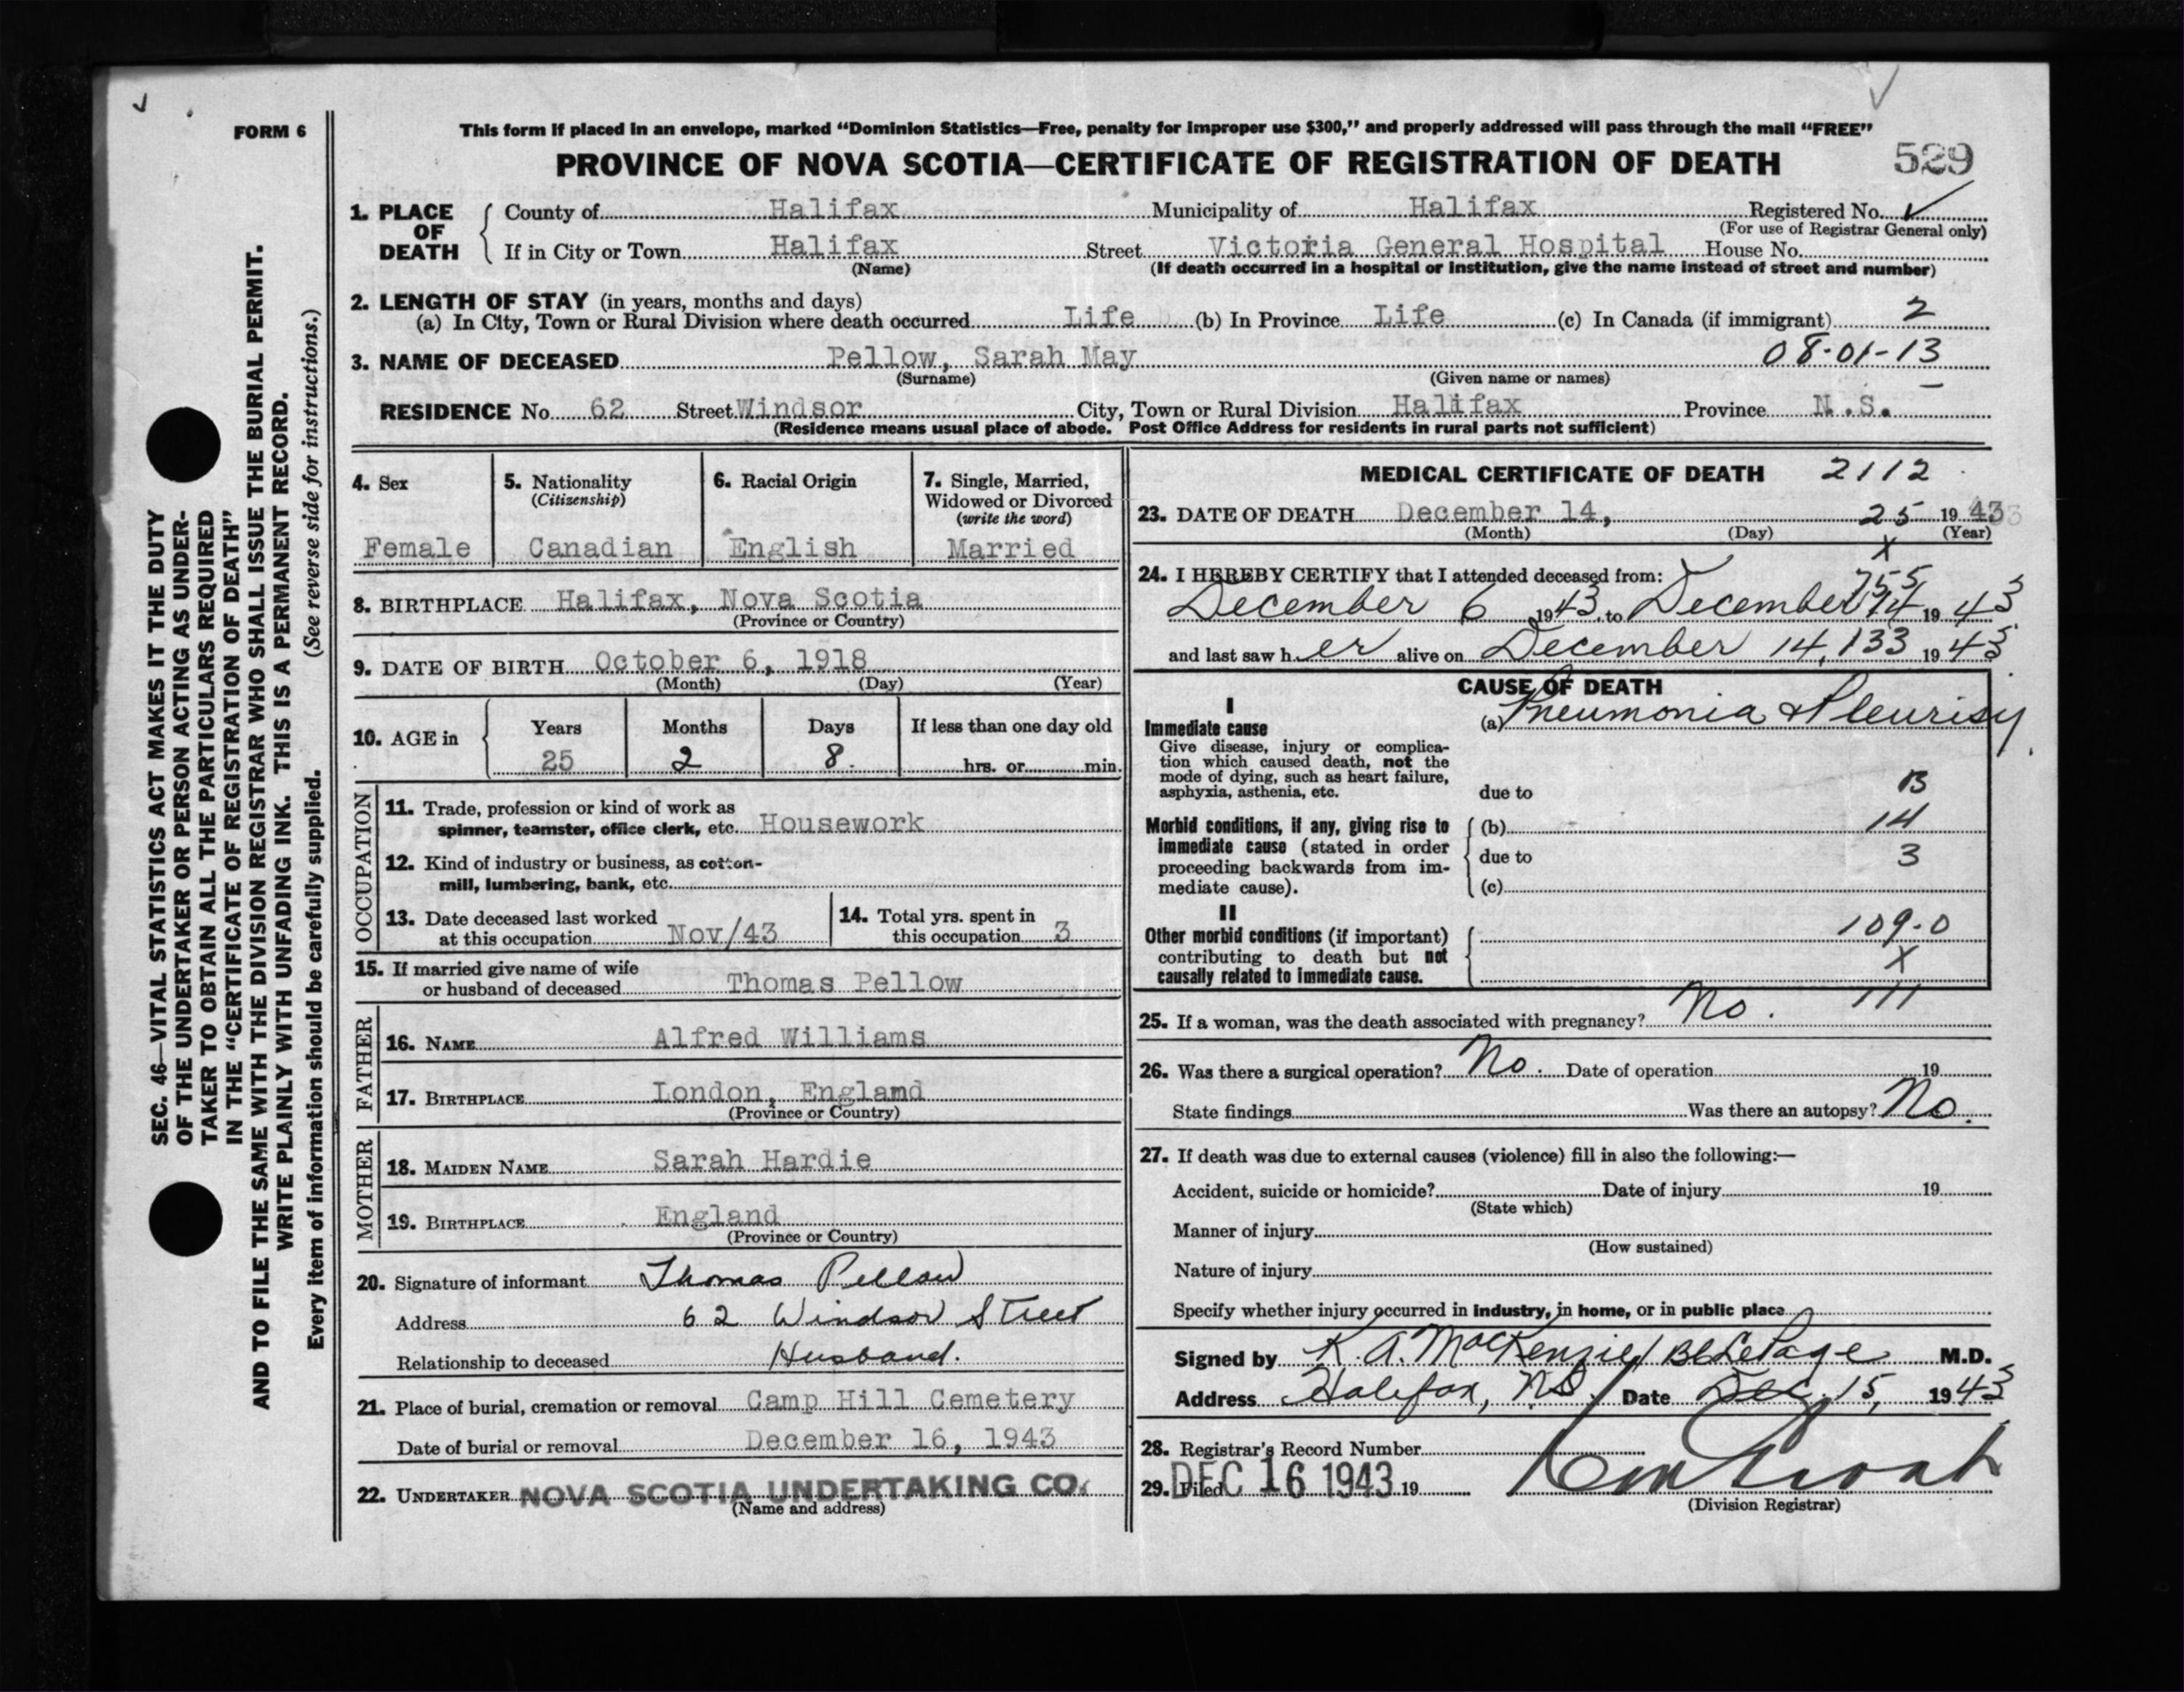 FORM 6
This form if placed in an envelope, marked "Dominion Statistics—Free, penalty for improper use $300," and properly addressed will pass through the mail "FREE"
PROVINCE OF NOVA SCOTIA—CERTIFICATE OF REGISTRATION OF DEATH 529
1. PLACE OF DEATH County of Halifax Municipality of Halifax Registered No. ✓
(For use of Registrar General only)
If in City or Town Halifax Street Victoria General Hospital House No.
(Name) (If death occurred in a hospital or institution, give the name instead of street and number)
2. LENGTH OF STAY (in years, months and days)
(a) In City, Town or Rural Division where death occurred Life (b) In Province Life (c) In Canada (if immigrant) 2
3. NAME OF DECEASED Pellow, Sarah May 08-01-13
(Surname) (Given name or names)
RESIDENCE No. 62 Street Windsor City, Town or Rural Division Halifax Province N.S.
(Residence means usual place of abode. Post Office Address for residents in rural parts not sufficient)
4. Sex
Female
5. Nationality
(Citizenship)
Canadian
6. Racial Origin
English
7. Single, Married,
Widowed or Divorced
(write the word)
Married
8. BIRTHPLACE Halifax, Nova Scotia
(Province or Country)
9. DATE OF BIRTH October 6, 1918
(Month) (Day) (Year)
10. AGE in Years Months Days If less than one day old
25 2 8. hrs. or min.
OCCUPATION
11. Trade, profession or kind of work as
spinner, teamster, office clerk, etc. Housework
12. Kind of industry or business, as cotton-
mill, lumbering, bank, etc.
13. Date deceased last worked
at this occupation Nov/43
14. Total yrs. spent in
this occupation 3
15. If married give name of wife
or husband of deceased Thomas Pellow
FATHER
16. NAME Alfred Williams
17. BIRTHPLACE London, England
(Province or Country)
MOTHER
18. MAIDEN NAME Sarah Hardie
19. BIRTHPLACE England
(Province or Country)
20. Signature of informant Thomas Pellow
Address 62 Windsor Street
Relationship to deceased Husband.
21. Place of burial, cremation or removal Camp Hill Cemetery
Date of burial or removal December 16, 1943
22. UNDERTAKER NOVA SCOTIA UNDERTAKING CO.
(Name and address)
MEDICAL CERTIFICATE OF DEATH 2112
23. DATE OF DEATH December 14, 25 19 43
(Month) (Day) (Year)
X
24. I HEREBY CERTIFY that I attended deceased from: 755
December 6 1943, to December 14 19 43
and last saw h er alive on December 14, 133 19 43
CAUSE OF DEATH
I
Immediate cause (a) Pneumonia & Pleurisy
Give disease, injury or complica-
tion which caused death, not the
mode of dying, such as heart failure,
asphyxia, asthenia, etc. due to B
Morbid conditions, if any, giving rise to (b) 14
immediate cause (stated in order due to 3
proceeding backwards from im-
mediate cause). (c)
II
Other morbid conditions (if important) 109-0
contributing to death but not X
causally related to immediate cause.
111
25. If a woman, was the death associated with pregnancy? No.
26. Was there a surgical operation? No. Date of operation 19
State findings Was there an autopsy? No.
27. If death was due to external causes (violence) fill in also the following:—
Accident, suicide or homicide? Date of injury 19
(State which)
Manner of injury
(How sustained)
Nature of injury
Specify whether injury occurred in industry, in home, or in public place
Signed by K. A. MacKenzie / BL LePage M.D.
Address Halifax, N.S. Date Dec. 15, 1943
28. Registrar's Record Number
29. Filed DEC 16 1943 19
(Division Registrar)
SEC. 46—VITAL STATISTICS ACT MAKES IT THE DUTY
OF THE UNDERTAKER OR PERSON ACTING AS UNDER-
TAKER TO OBTAIN ALL THE PARTICULARS REQUIRED
IN THE "CERTIFICATE OF REGISTRATION OF DEATH"
AND TO FILE THE SAME WITH THE DIVISION REGISTRAR WHO SHALL ISSUE THE BURIAL PERMIT.
WRITE PLAINLY WITH UNFADING INK. THIS IS A PERMANENT RECORD.
Every item of information should be carefully supplied. (See reverse side for instructions.)